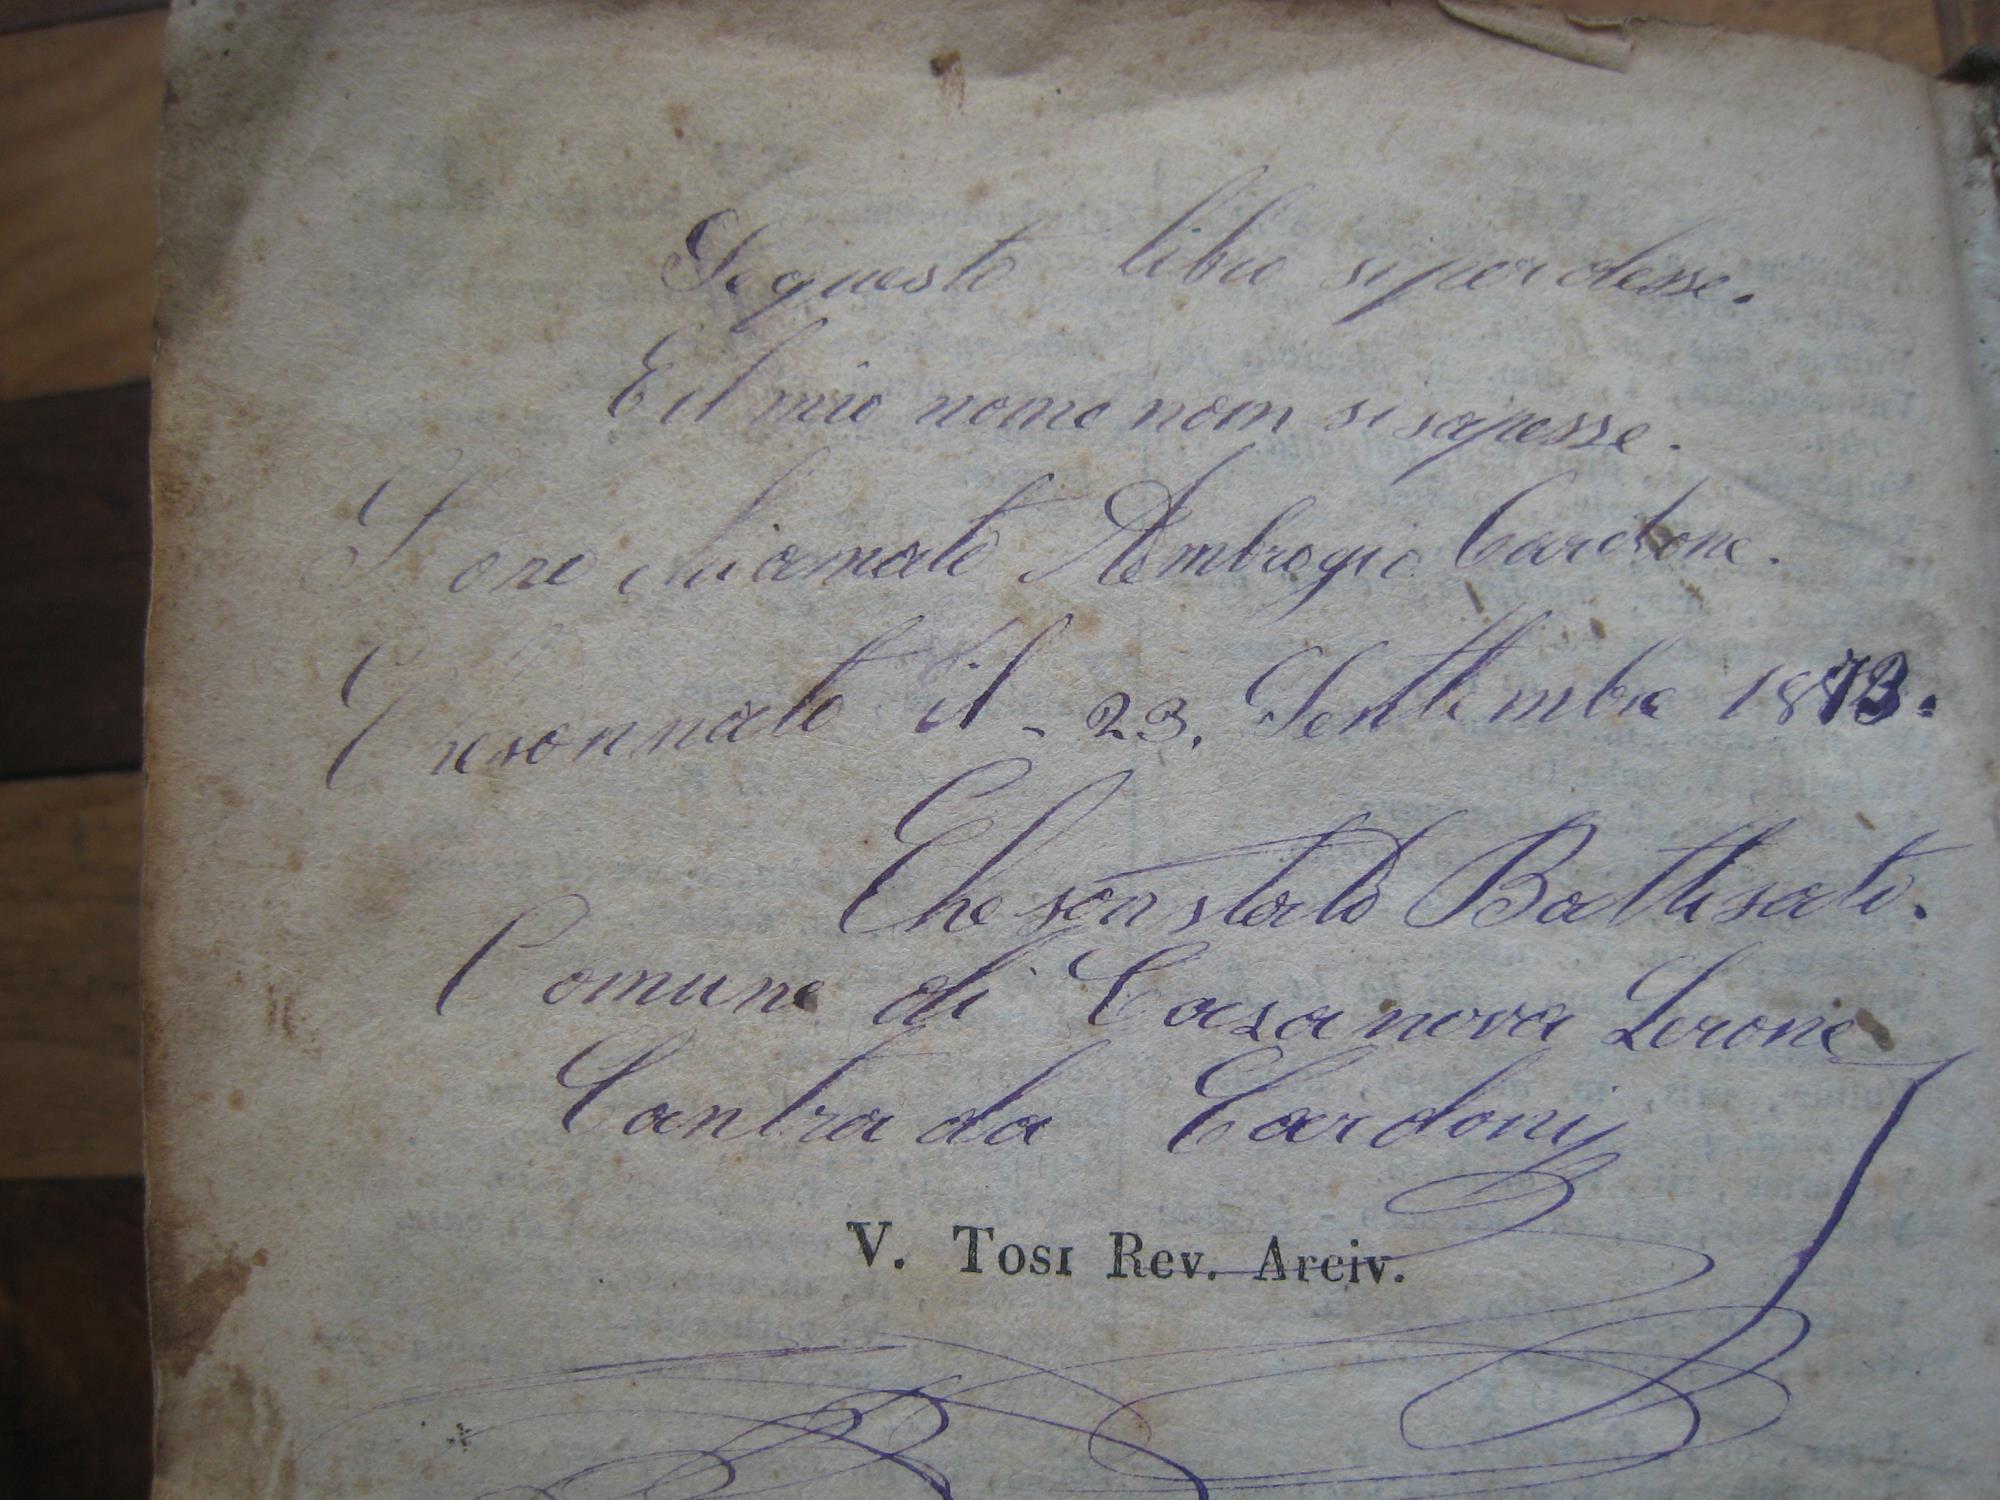 Se questo libro si perdesse.
E il mio nome nom si sapesse.
Sono chiamato Ambrogio Cardone.
Che son nato il - 23. Settembre 1873.
Che son stato Battisato.
Comune di Casanova Lerone
Contrada Cardoni
V. Tosi Rev. Arciv.